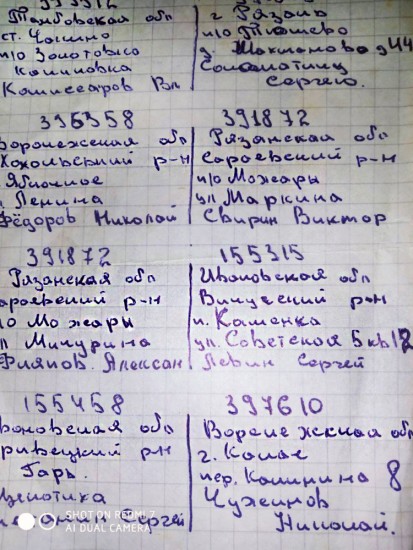 Тамбовская обл
ст. Чакино
п/о Золотовка
Калиновка
Комиссаров Вл
г Рязань
п/о
д. Шахманово д 44
Соломатину
Сергею.
396358
Воронежская обл
Хохольский р-н
Яблочное
Ленина
Фёдоров Николай
391872
Рязанская обл
Сараевский р-н
п/о Можары
ул Маркина
Свирин Виктор
391872
Рязанская обл
араевский р-н
о Можары
л Мичурина
Алексан
155315
Ивановская обл
Вичугский р-он
п. Каменка
ул. Советская 5 кв 12
Левин Сергей
155458
вановская обл
р-н
Гарь.
Сергей
397610
Воронежская об
г. Калач
пер. Калинина 8
Чужинов
Николай.
SHOT ON REDMI 7
AI DUAL CAMERA